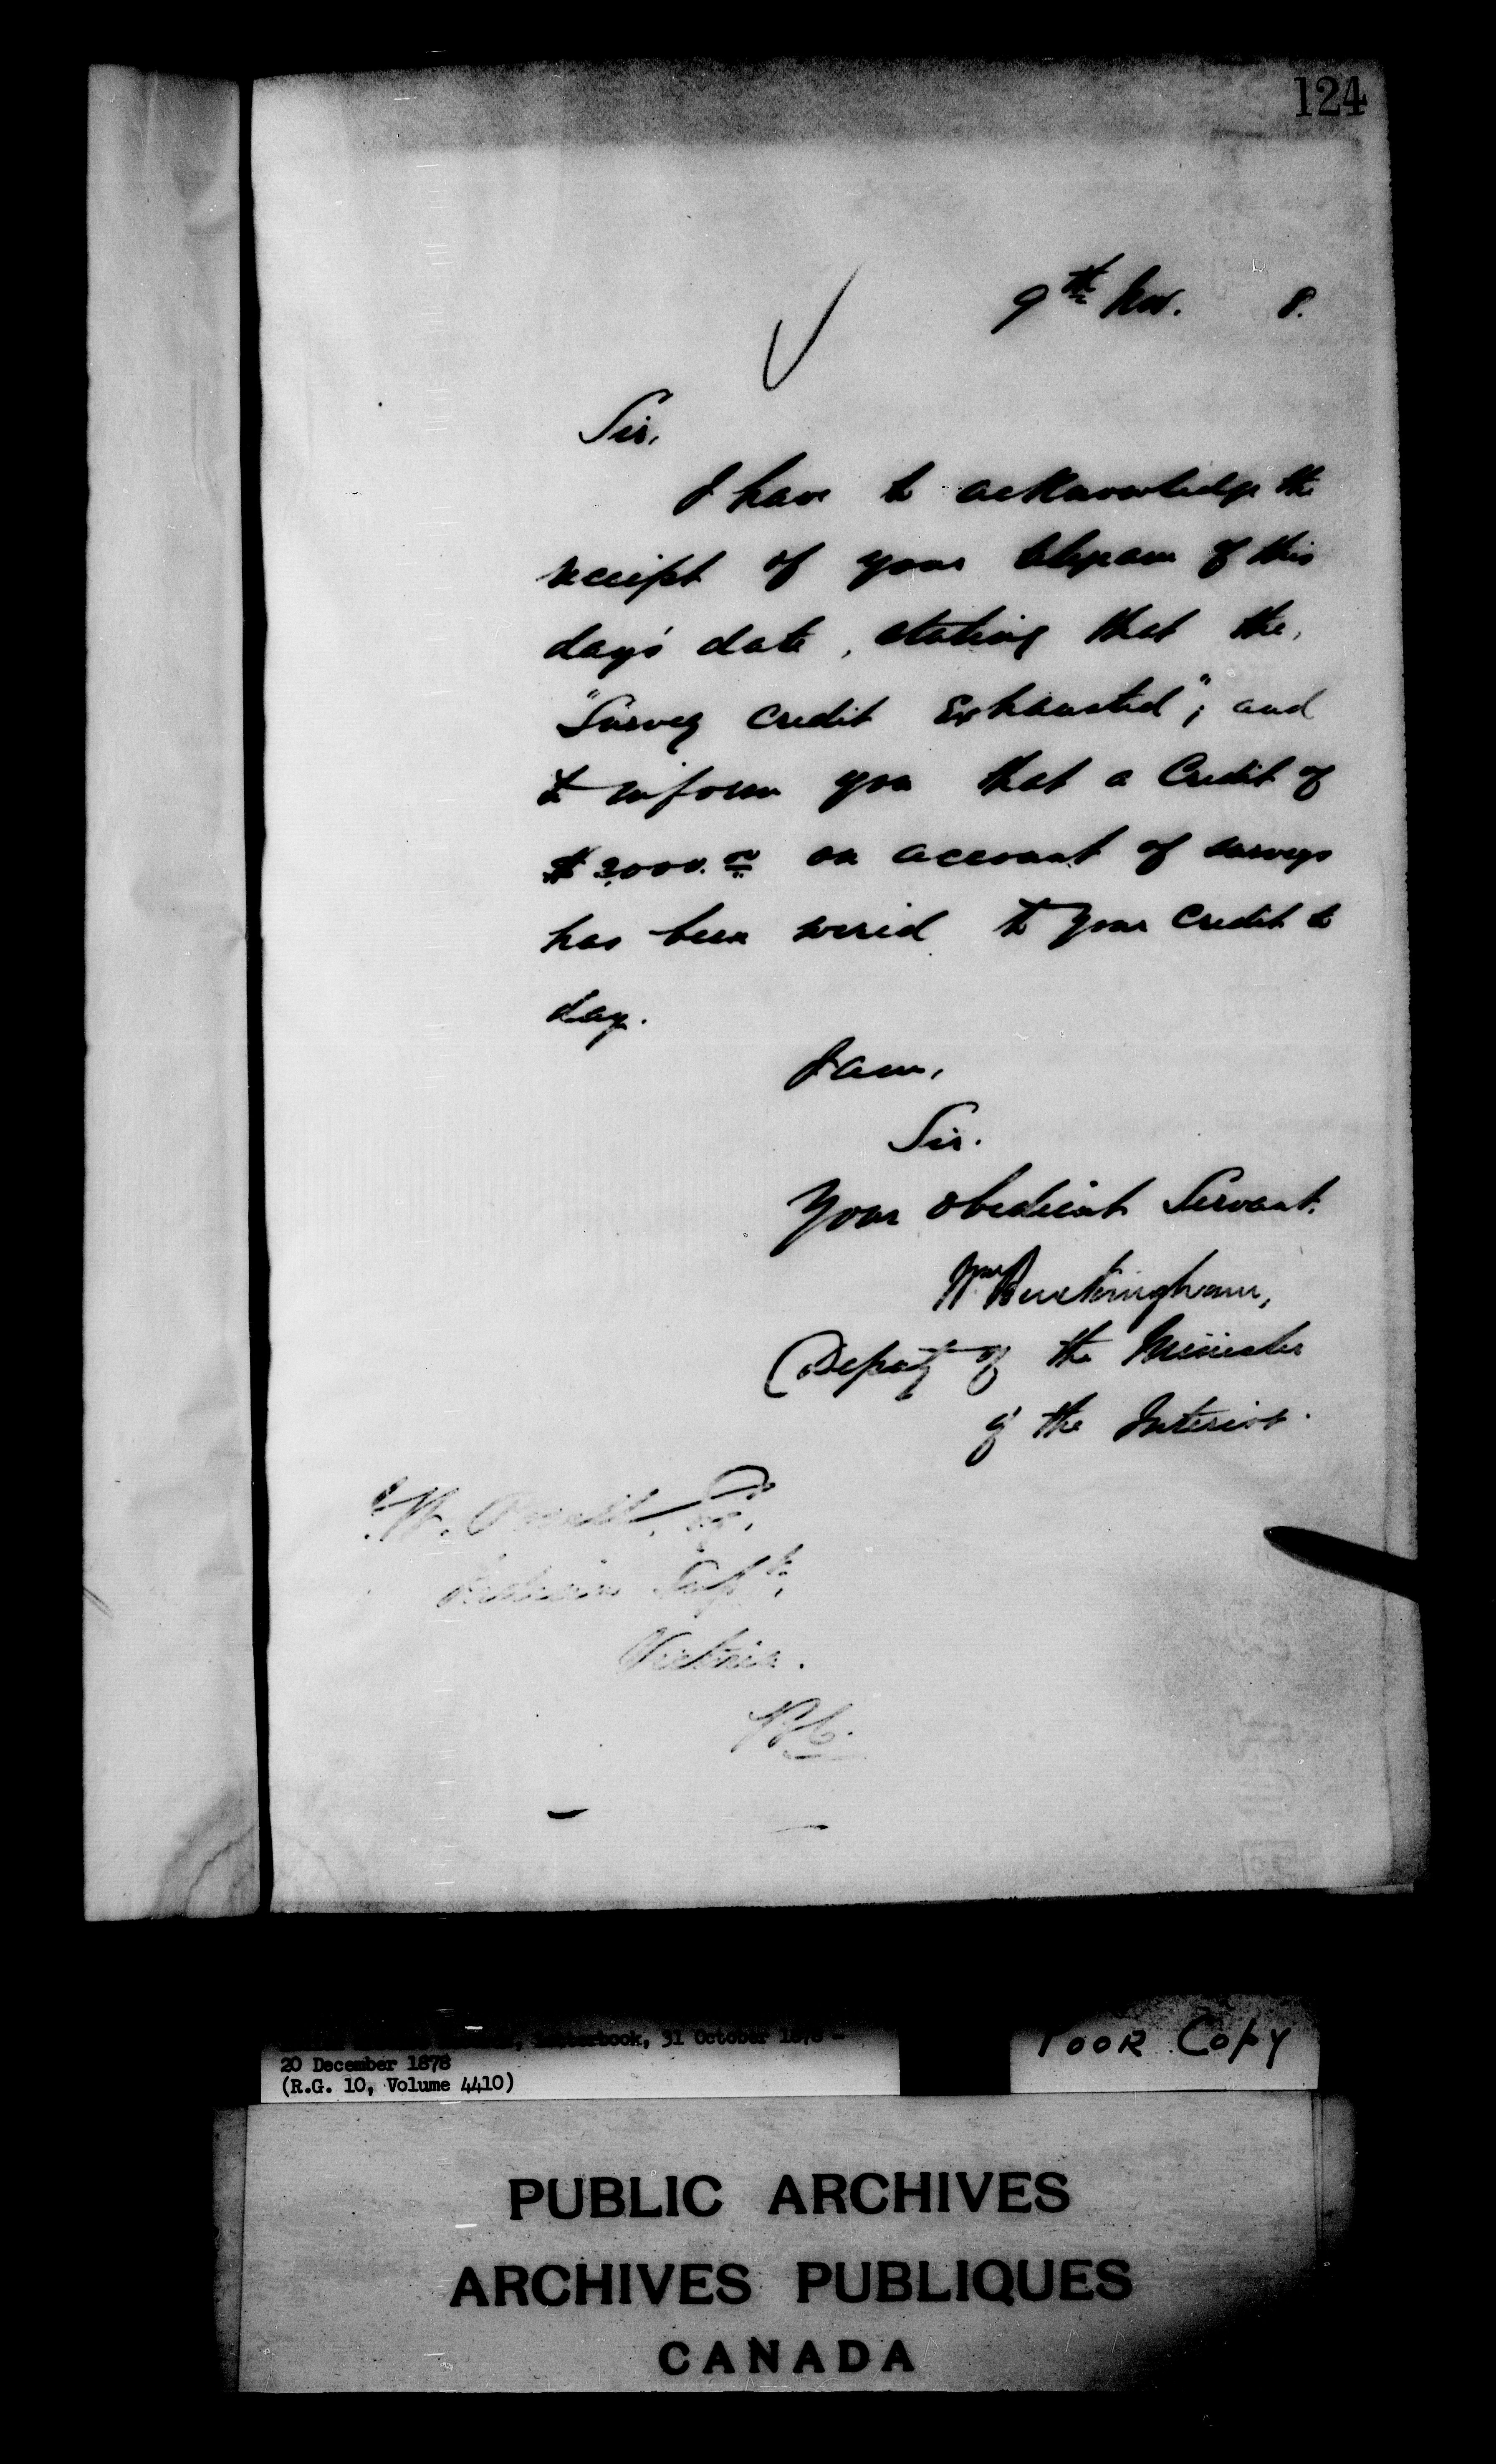 124
9th Nov. 8.
Sir,
I have to acknowledge the
receipt of your telegram of this
day's date, stating that the,
"Survey Credit Exhausted"; and
to inform you that a Credit of
on account of surveys
has been wired to your Credit to
day.
I am,
Sir.
Your obedient Servant.
Wm Buckingham,
Deputy of the Minister
of the Interior.
Esq.
Supt,
Victoria.
B.C.
Letterbook, 31 October 1878 -
20 December 1878
(R.G. 10, Volume 4410)
Poor Copy
PUBLIC ARCHIVES
ARCHIVES PUBLIQUES
CANADA